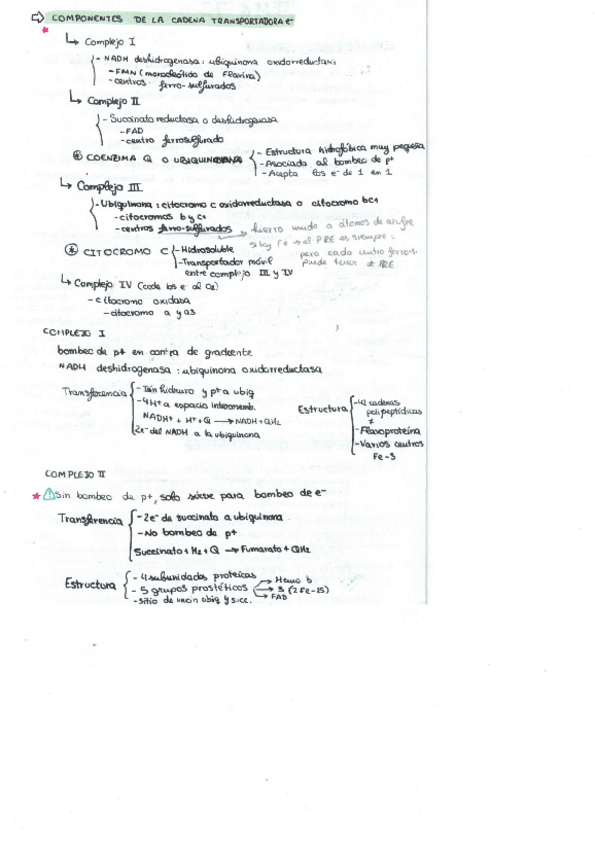 ⇨ COMPONENTES DE LA CADENA TRANSPORTADORA e-
* ↳ Complejo I
- NADH deshidrogenasa: ubiquinona oxidorreductasa
- FMN (mononucleótido de flavina)
- centros ferro-sulfurados
↳ Complejo II
- Succinato reductasa o deshidrogenasa
- FAD
- centro ferrosulfurado
COENZIMA Q O UBIQUINONA
- Estructura hidrofóbica muy pequeña
- Asociada al bombeo de p+
- Acepta los e- de 1 en 1
↳ Complejo III
- Ubiquinona: citocromo c oxidorreductasa o citocromo bc1
- citocromos b y c1
- centros ferro-sulfurados → hierro unido a átomos de azufre
si hay Fe → el PRE es siempre:
pero cada centro ferro-s:
puede tener ≠ PRE
CITOCROMO C
- Hidrosoluble
- Transportador móvil
entre complejo III y IV
↳ Complejo IV (cede los e- al O2)
- citocromo oxidasa
- citocromo a y a3
COMPLEJO I
bombeo de p+ en contra de gradiente
NADH deshidrogenasa: ubiquinona oxidorreductasa
Transferencia
- Ion hidruro y p+ a ubiq
- 4H+ a espacio intermemb.
NADH+ + H+ + Q → NADH + QH2
2e- del NADH a la ubiquinona
Estructura
- 42 cadenas
polipeptídicas
≠
- Flavoproteína
- Varios centros
Fe-S
COMPLEJO II
* Sin bombeo de p+, solo sirve para bombeo de e-
Transferencia
- 2e- de succinato a ubiquinona
- No bombeo de p+
Succinato + H2 + Q → Fumarato + QH2
Estructura
- 4 subunidades proteicas
- 5 grupos prostéticos → Hemo b
→ 3 (2Fe-2S)
→ FAD
- sitio de unión ubiq y succ.